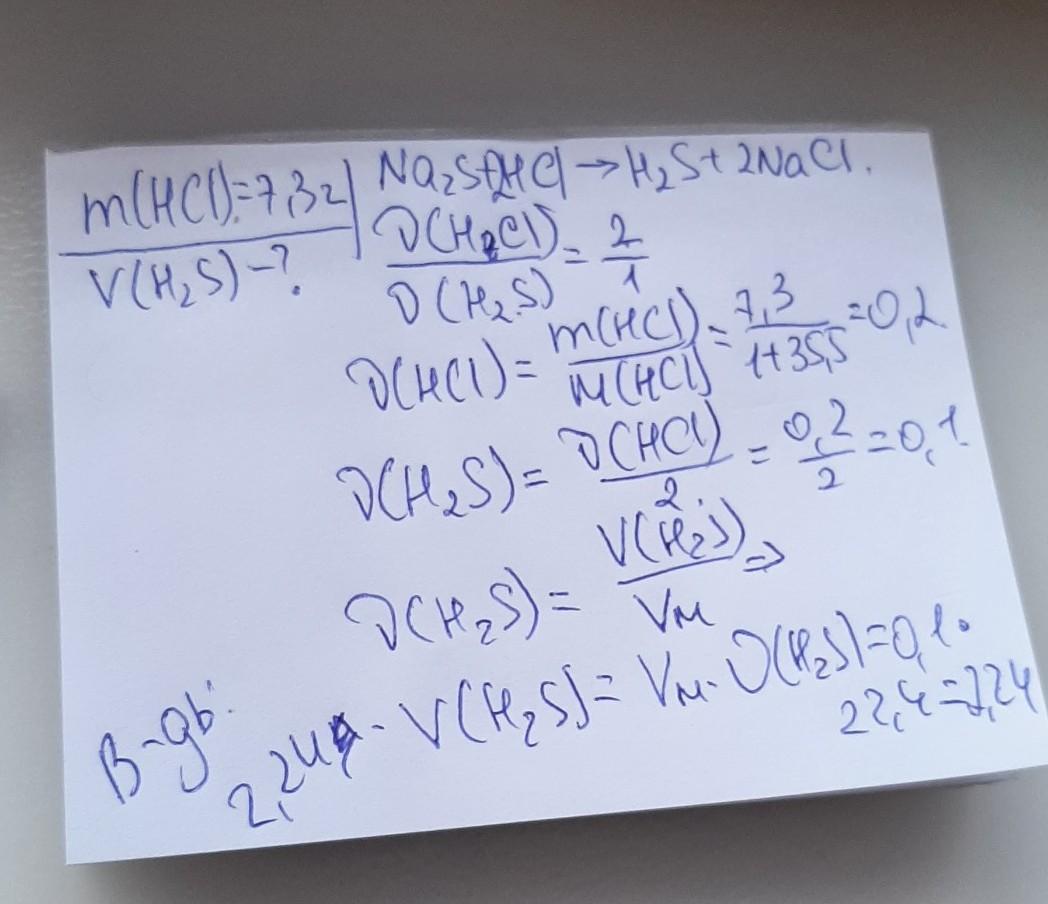 m(HCl)=7,3г
V(H₂S)-?
Na₂S+2HCl→H₂S+2NaCl.
ν(HCl)/ν(H₂S) = 2/1
ν(HCl) = m(HCl)/M(HCl) = 7,3/1+35,5 = 0,2
ν(H₂S) = ν(HCl)/2 = 0,2/2 = 0,1
ν(H₂S) = V(H₂S)/Vм ⇒
V(H₂S) = Vм·ν(H₂S)=0,1·
22,4=2,24
В-дь:
2,24л